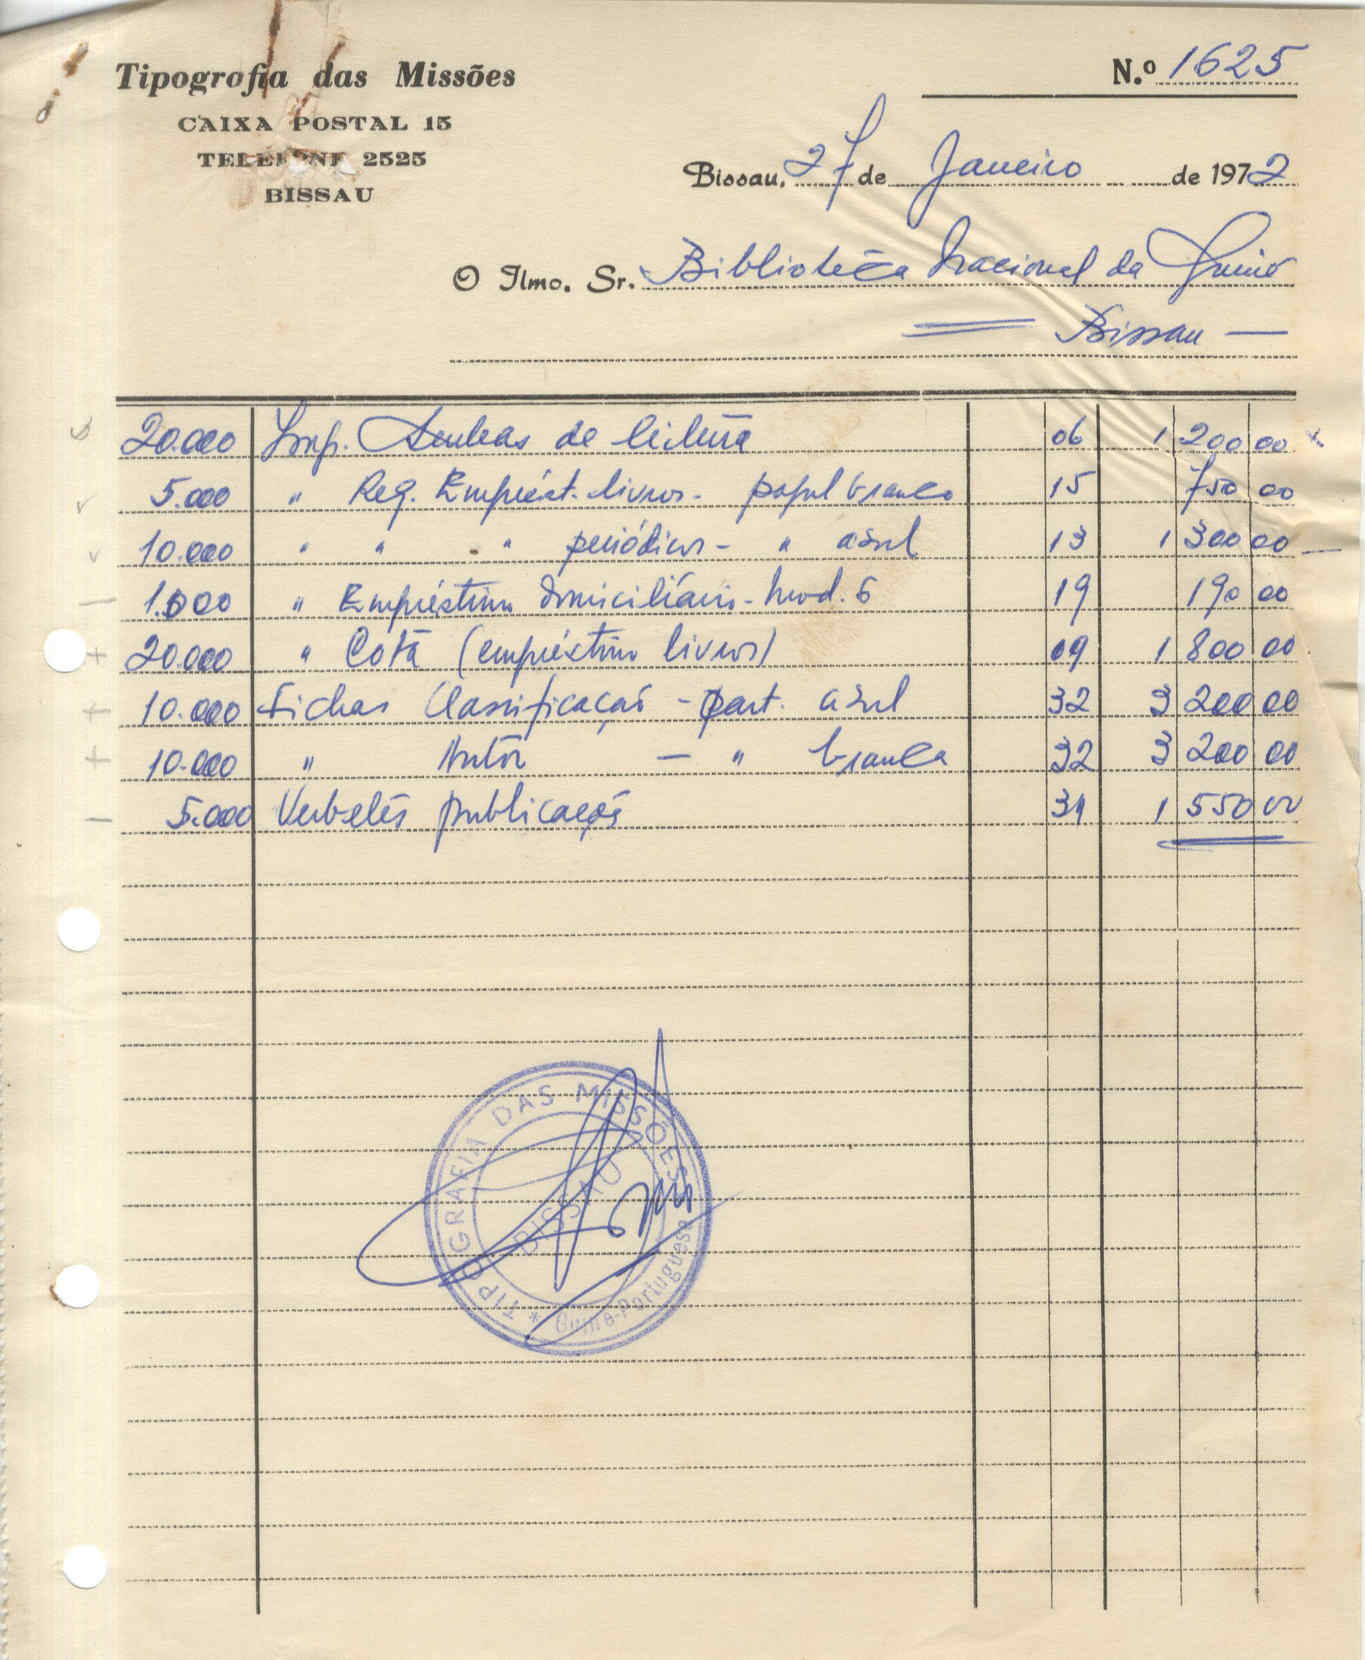 Tipografia das Missões
N.º 1625
CAIXA POSTAL 15
TELEFONE 2525
BISSAU
Bissau, 27 de Janeiro de 1972
O Ilmo. Sr. Biblioteca Nacional da Guiné
Bissau
20.000 Imp. Senhas de leitura 06 1 200 00
5.000 " Req. Emprést. livros - papel branco 15 750 00
10.000 " " " periódicos - " azul 13 1 300 00
1.000 " Empréstimo domiciliário - Mod. 6 19 190 00
20.000 " Cota (empréstimo livros) 09 1 800 00
10.000 Fichas Classificação - cart. azul 32 3 200 00
10.000 " Autor - " branca 32 3 200 00
5.000 Verbetes publicações 31 1 550 00
TIPOGRAFIA DAS MISSÕES
BISSAU
* Guiné-Portuguesa